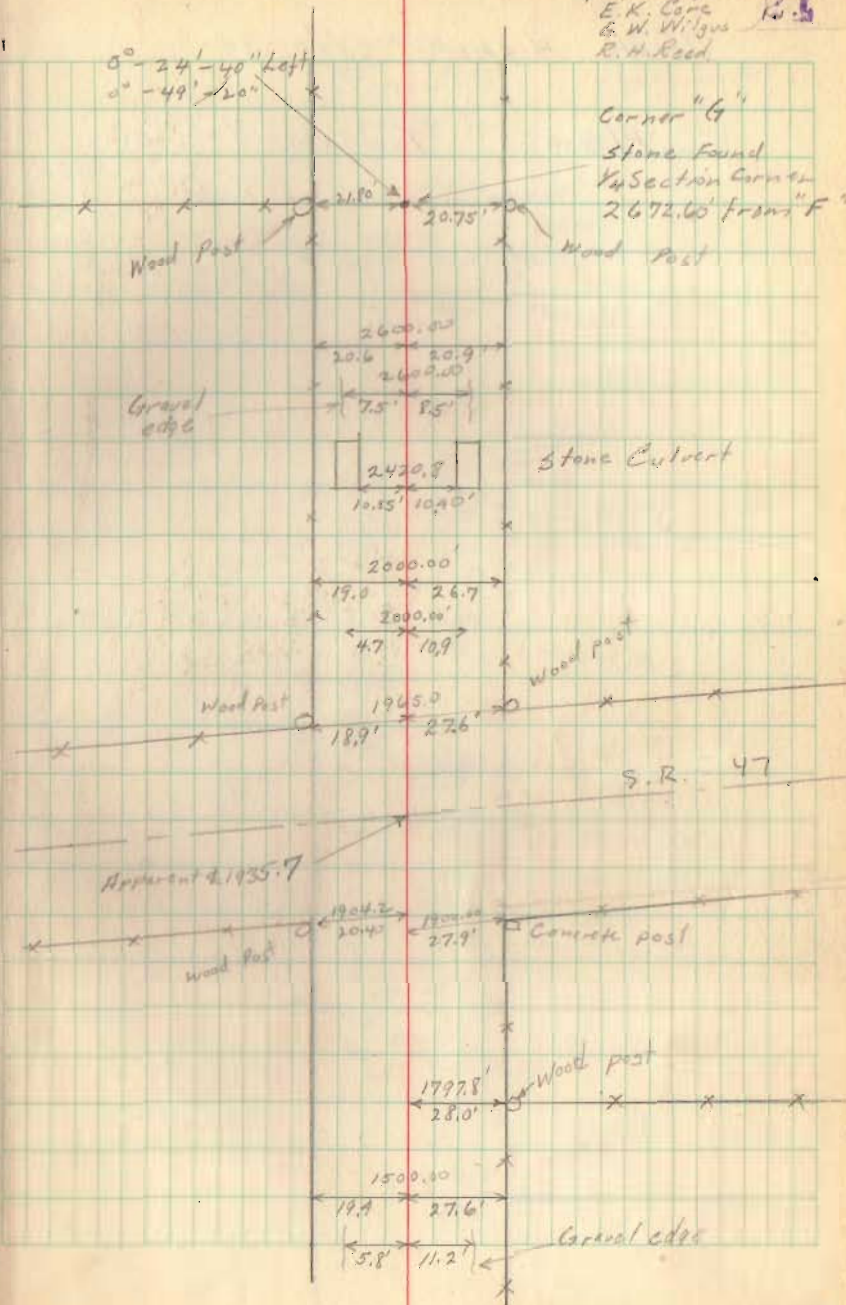 E. K. Core
G. W. Wilgus
R. H. Reed
0° - 24' - 40" Left
0° - 49' - 20"
Corner "G"
Stone Found
1/4 Section Corner
2672.60' from "F"
21.80'
20.75'
Wood Post
Wood Post
2600.00
20.6
20.9'
2600.00
Gravel
edge
7.5'
8.5'
2420.8
Stone Culvert
10.85'
10.40'
2000.00'
19.0
26.7
2000.00'
4.7
10.9
Wood post
Wood Post
1965.0
18.9'
27.6'
S.R. 47
Apparent ℄ 1935.7
1904.2
20.40
1900.00
27.9'
Concrete post
Wood Post
Wood post
1797.8'
28.0'
1500.00
19.4
27.6'
5.8'
11.2'
Gravel edge